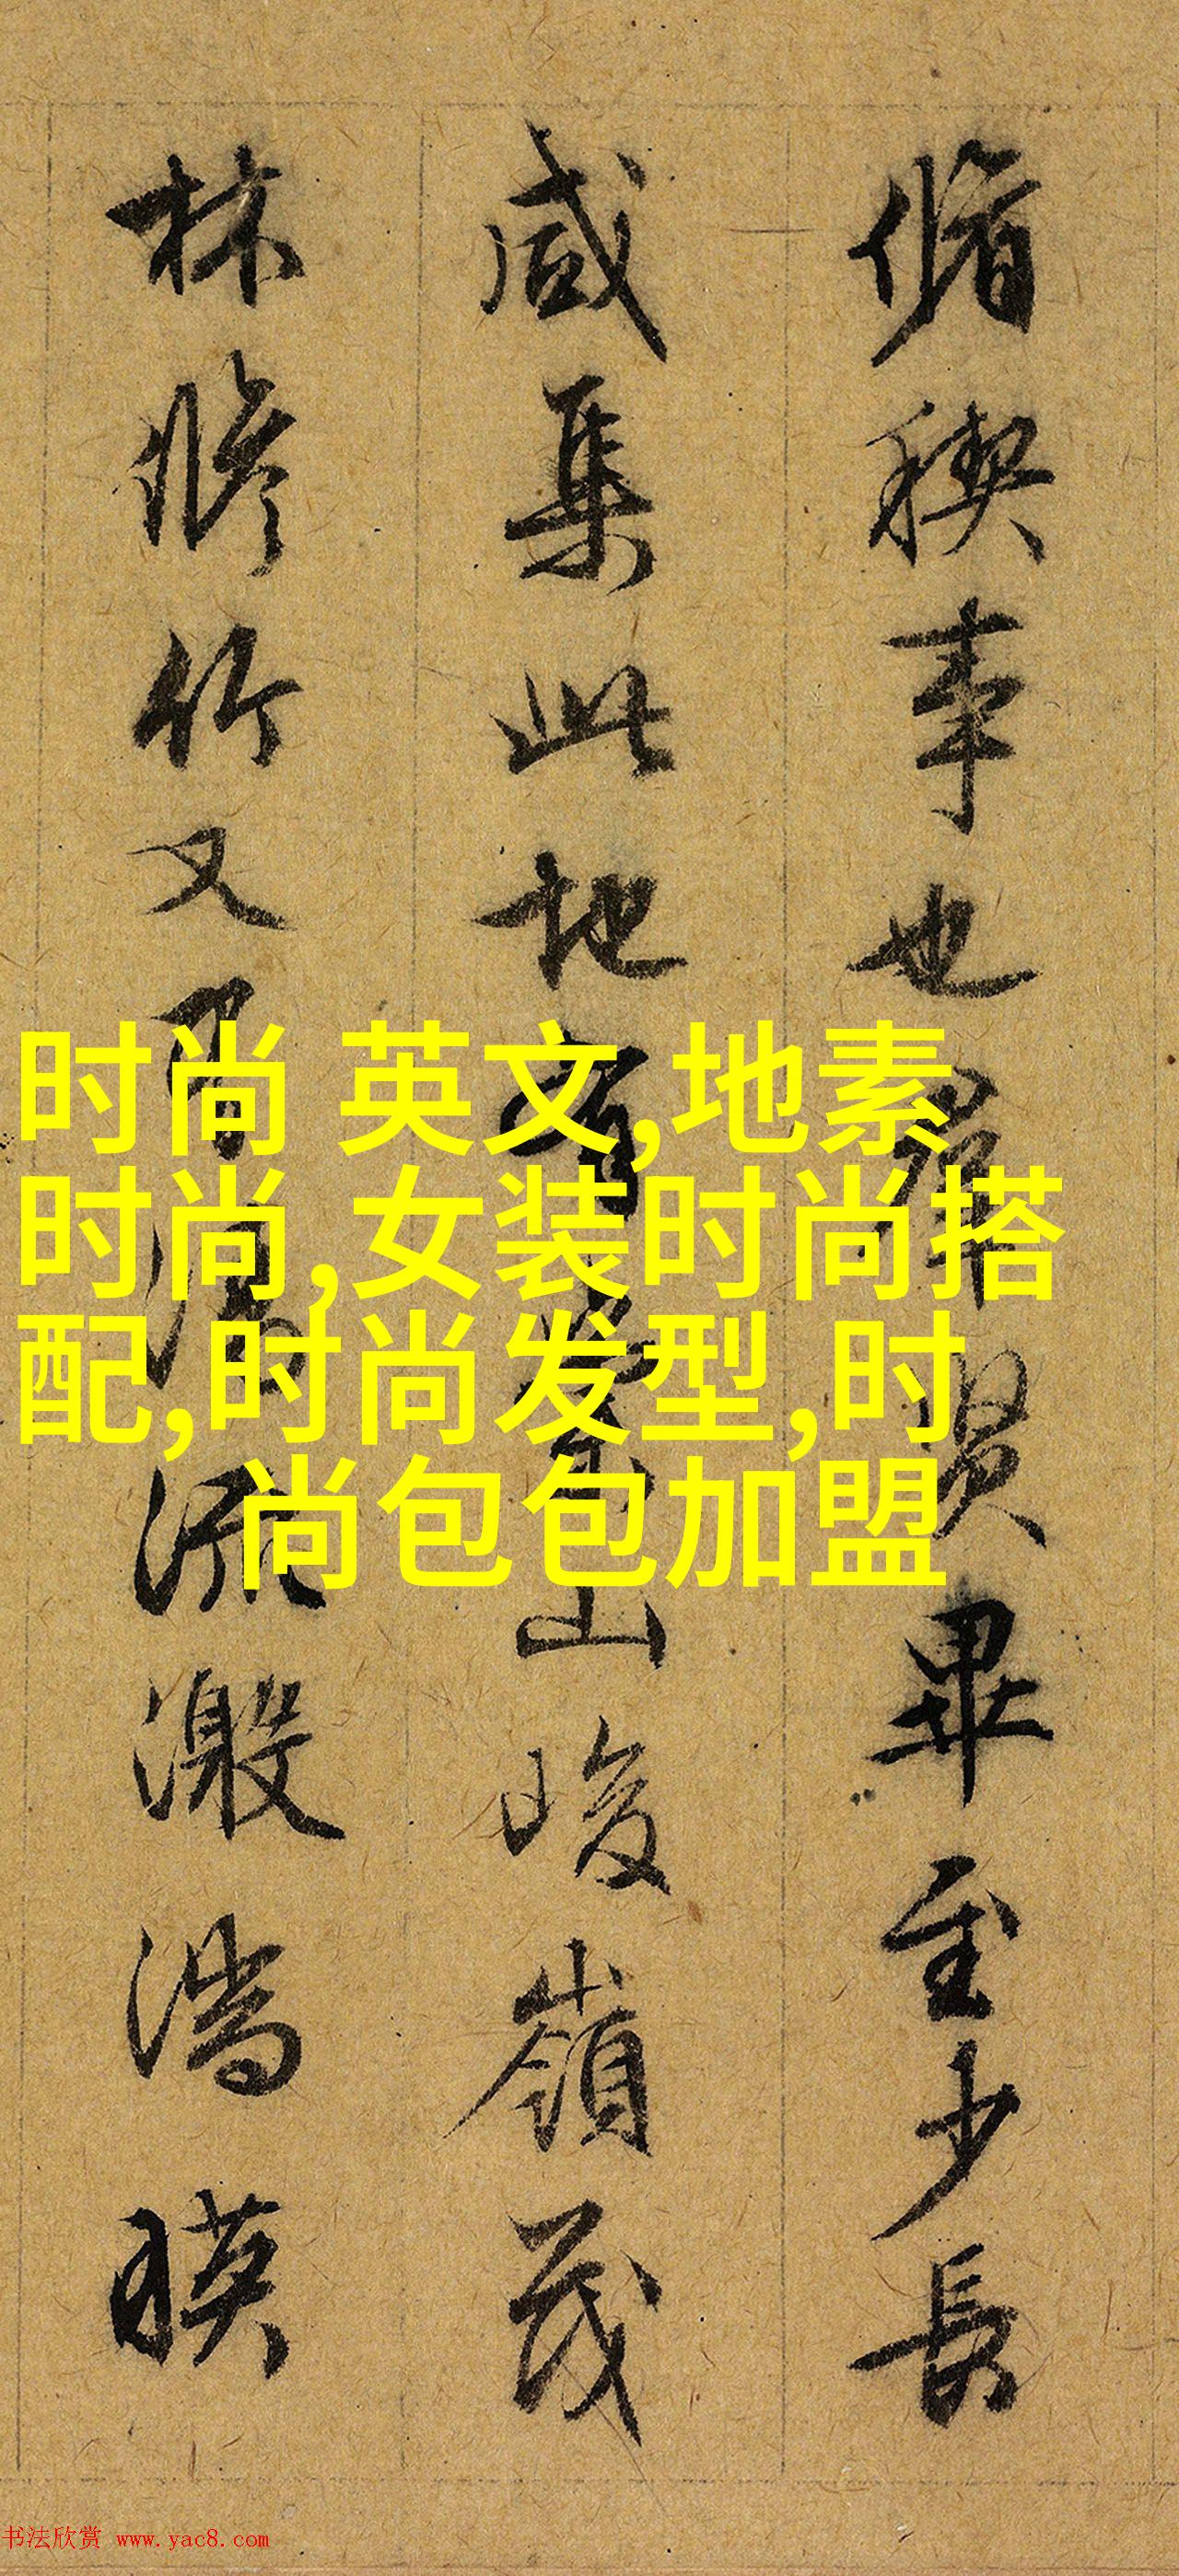 脩稧事也羣賢畢至少長
咸集此地有崇山峻嶺茂
林修竹又有清流激湍暎
时尚 英文,地素
时尚,女装时尚搭
配,时尚发型,时
尚包包加盟
书法欣赏 www.yac8.com